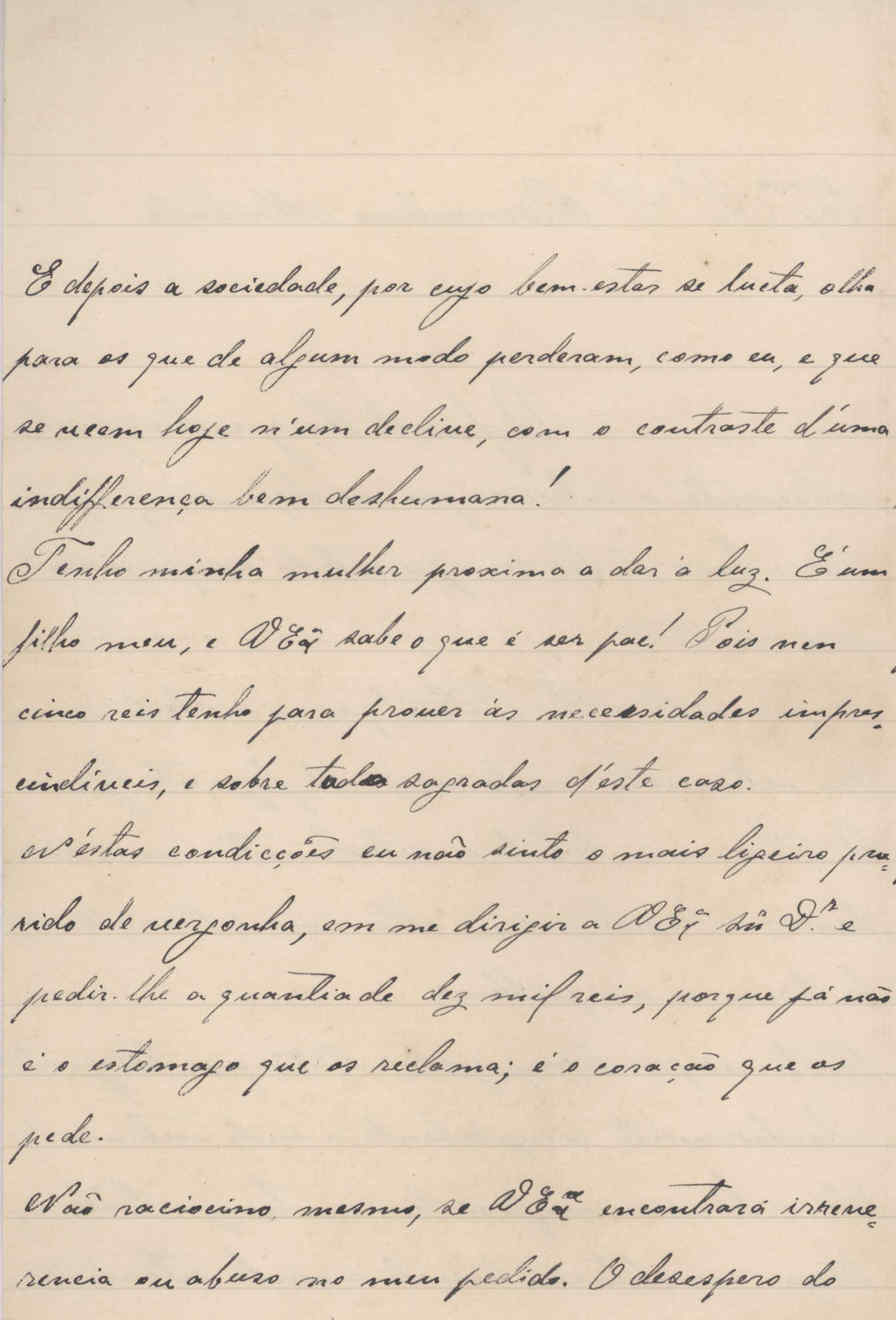 E depois a sociedade, por cujo bem-estar se lucta, olha
para os que de algum modo perderam, como eu, e que
se veem hoje n'um declive, com o contraste d'uma
indifferença bem deshumana!
Tenho minha mulher proxima a dar á luz. É um
filho meu, e V Exª sabe o que é ser pae! Pois nem
cinco reis tenho para prover ás necessidades impres-
cindiveis, e sobre tudo sagradas d'este caso.
N'éstas condicções eu não sinto o mais ligeiro pru=
rido de vergonha, em me dirigir a V Exª snr D.r e
pedir-lhe a quantia de dez mil reis, porque já não
é o estomago que os reclama; é o coração que os
pede.
Não raciocino, mesmo, se V Exª encontrará irreve=
rencia ou abuso no meu pedido. O desespero do